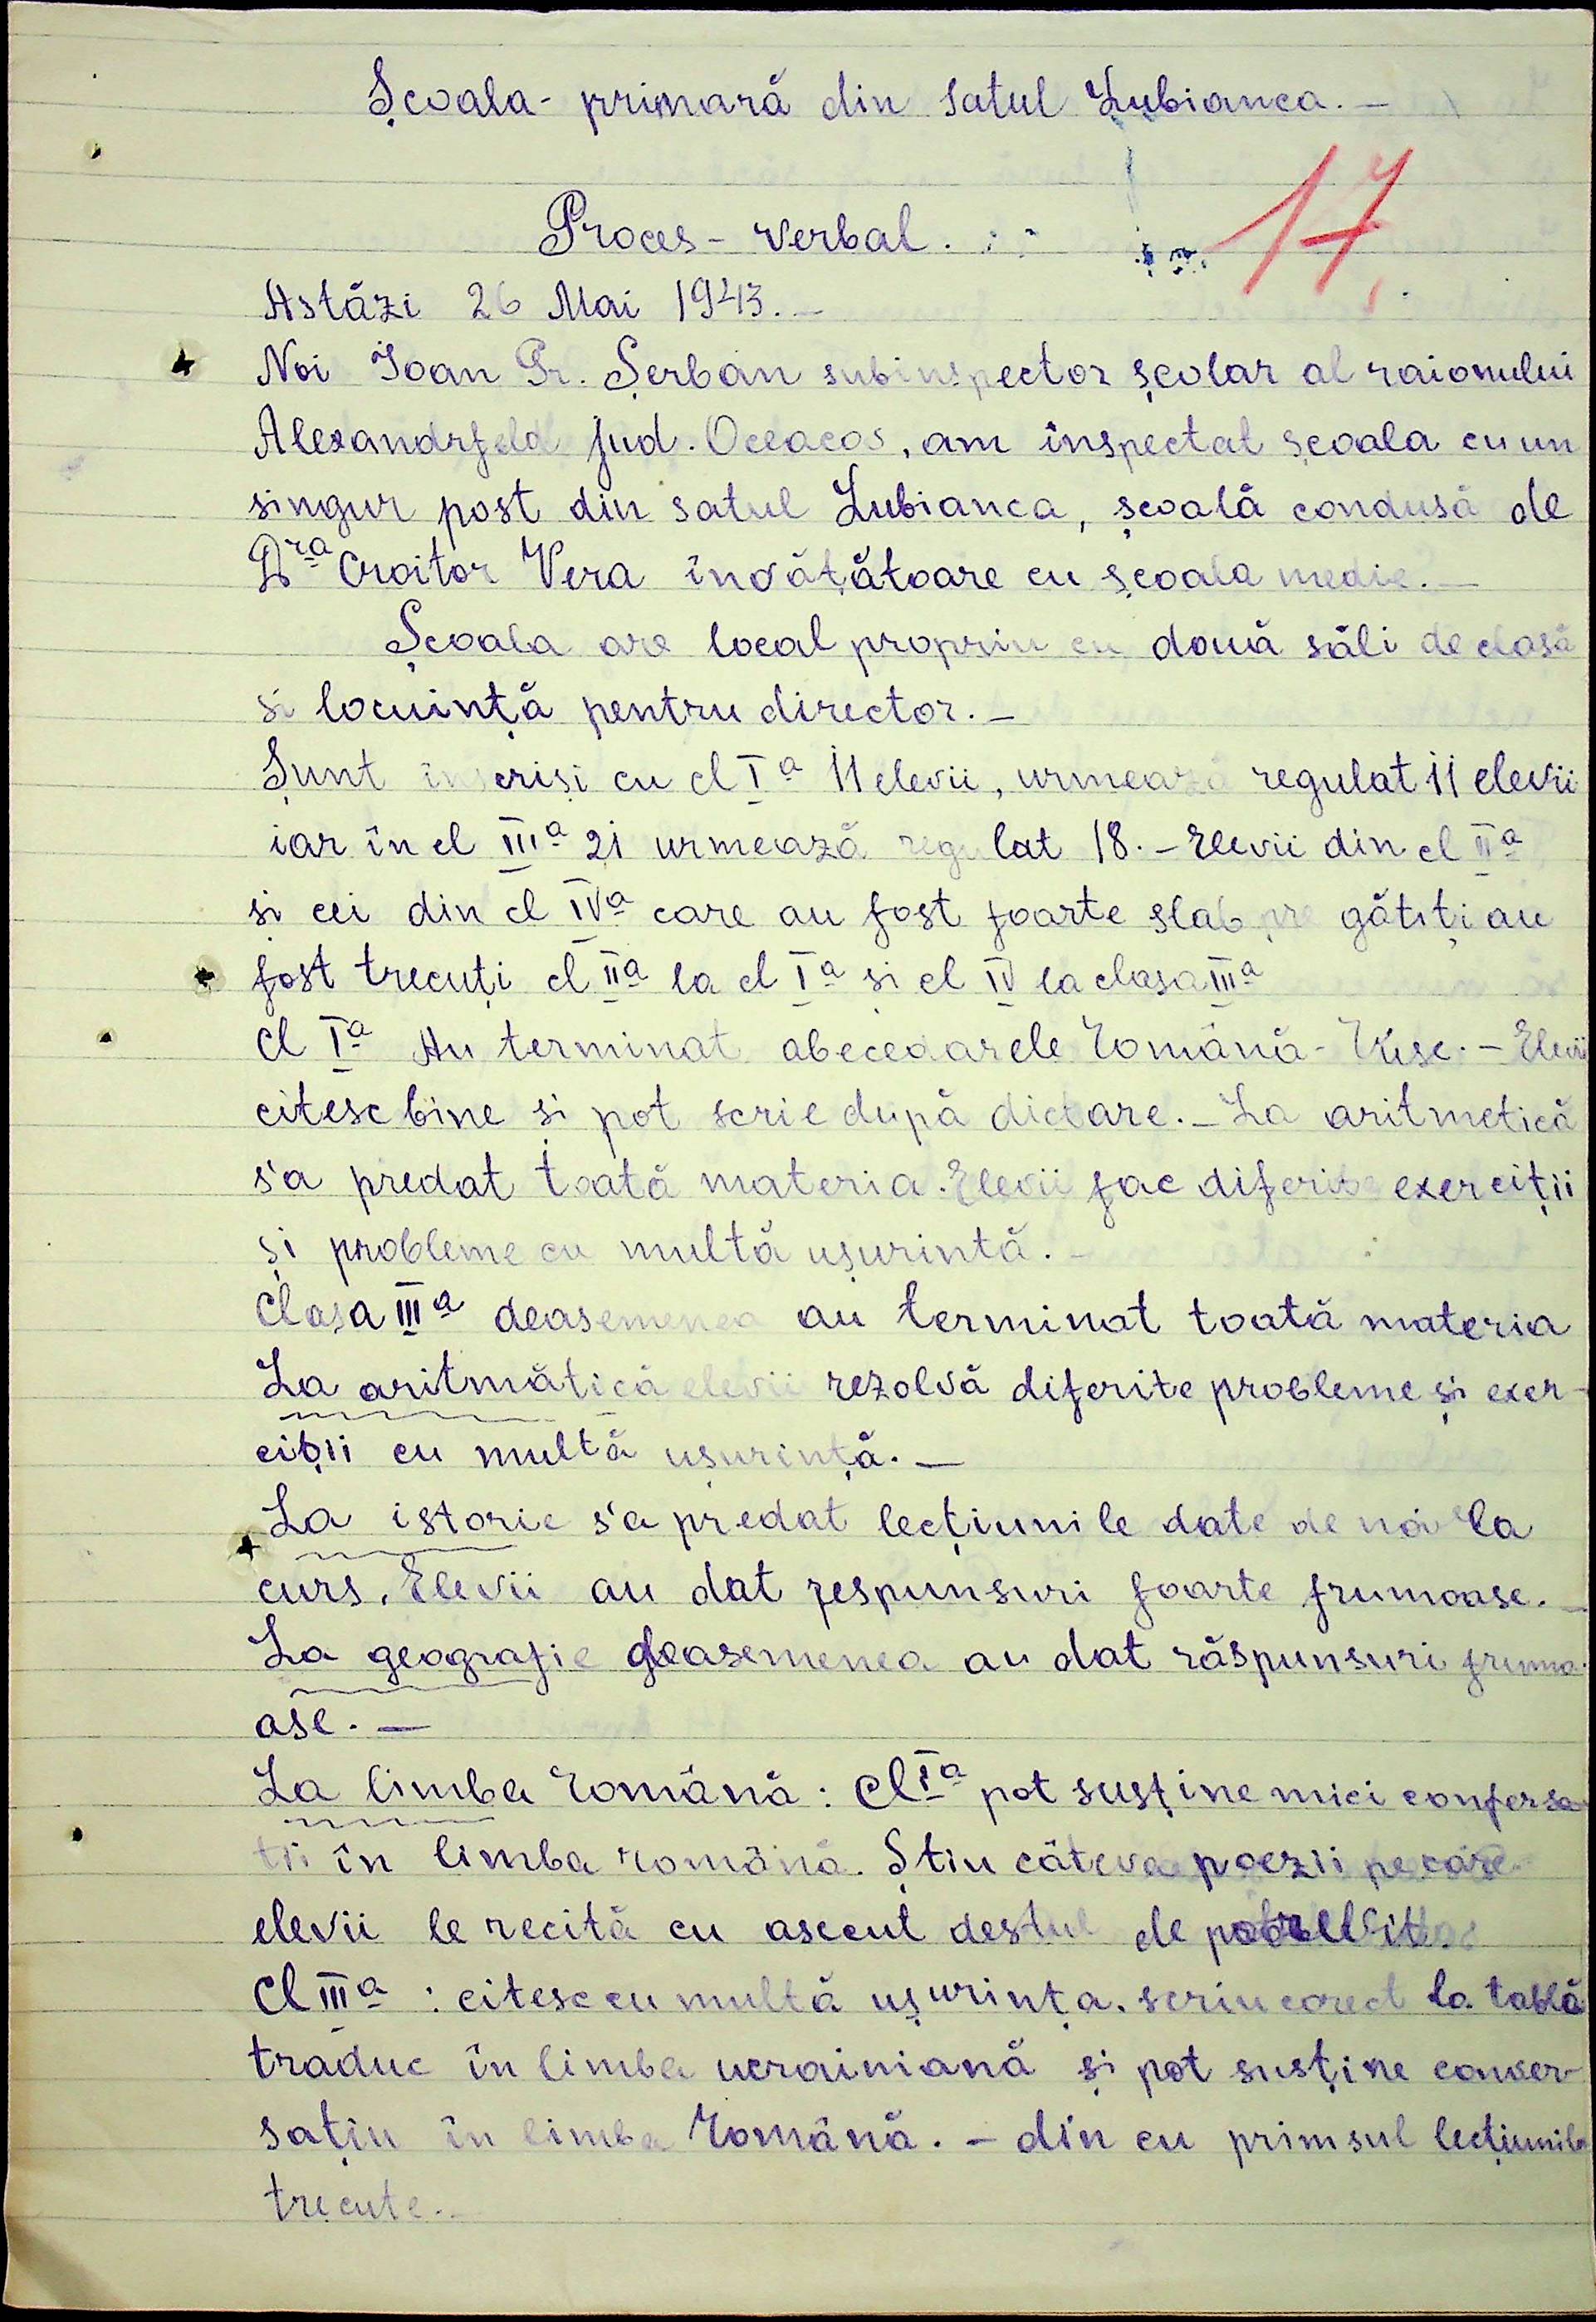 Școala - primară din satul Lubianca. —
17
Proces - verbal.
Astăzi 26 Mai 1943. —
Noi Ioan Gr. Șerban subinspector școlar al raionului
Alexandrfeld jud. Oceacos, am înspectat școala cu un
singur post din satul Lubianca, școală condusă de
D<sup>ra</sup> Croitor Vera învățătoare cu școala medie. —
Școala are local propriu cu două săli de clasă
si locuință pentru director. —
Sunt înscriși cu cl Iª 11 elevii, urmează regulat 11 elevii
iar în cl IIIª 21 urmează regulat 18. — Elevii din cl IIª
si cei din cl IVª care au fost foarte slab pregătiți au
fost trecuți cl IIª la cl Iª si cl IV la clasa IIIª
Cl Iª Au terminat abecedarele Română - Rusc. — Elevii
citesc bine si pot scrie după dictare. — La aritmetică
s'a predat toată materia. Elevii fac diferite exerciții
și probleme cu multă ușurintă. —
Clasa IIIª deasemenea au terminat toată materia
La aritmătică elevii rezolvă diferite probleme și exer-
ciții cu multă ușurință. —
La istorie s'a predat lecțiunile date de noi la
curs. Elevii au dat respunsuri foarte frumoase. —
La geografie deasemenea au dat răspunsuri frumo-
ase. —
La limba Română: Cl Iª pot susține mici confersa
tii în limba română. Știu câteva poezii pe care
elevii le recită cu asceut destul de
Cl IIIª : citesc cu multă ușurința. scriu corect la tablă
traduc în limba ucrainiană și pot susține conver-
sațiu în limba Română. — din cu primsul lecțiunile
trecute. —